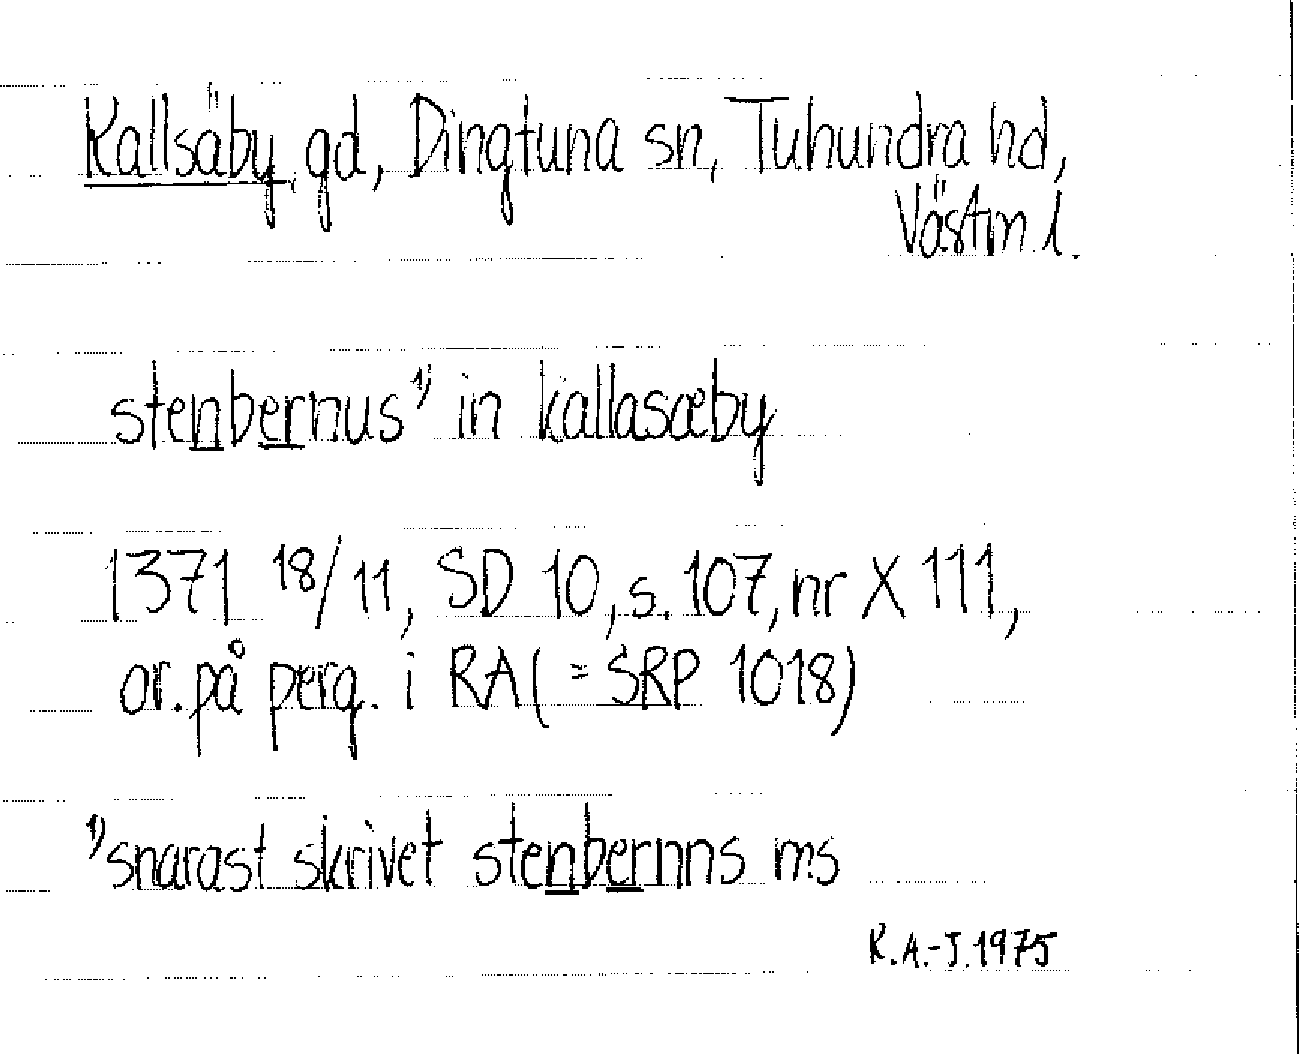 Kallsäby, gd, Dingtuna sn, Tuhundra hd,
Västm l.
stenbernus¹⁾ in kallasæby
1371 18/11, SD 10, s. 107, nr X 111,
or. på perg. i RA (= SRP 1018)
¹⁾ snarast skrivet stenbernns ms
K.A.-J. 1975